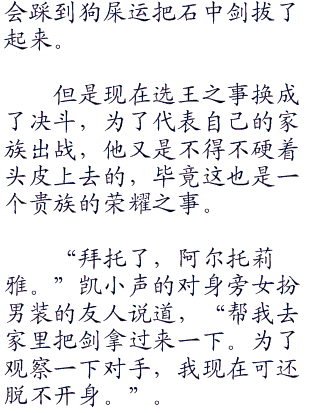 会踩到狗屎运把石中剑拔了
起来。
但是现在选王之事换成
了决斗，为了代表自己的家
族出战，他又是不得不硬着
头皮上去的，毕竟这也是一
个贵族的荣耀之事。
“拜托了，阿尔托莉
雅。”凯小声的对身旁女扮
男装的友人说道，“帮我去
家里把剑拿过来一下。为了
观察一下对手，我现在可还
脱不开身。”。